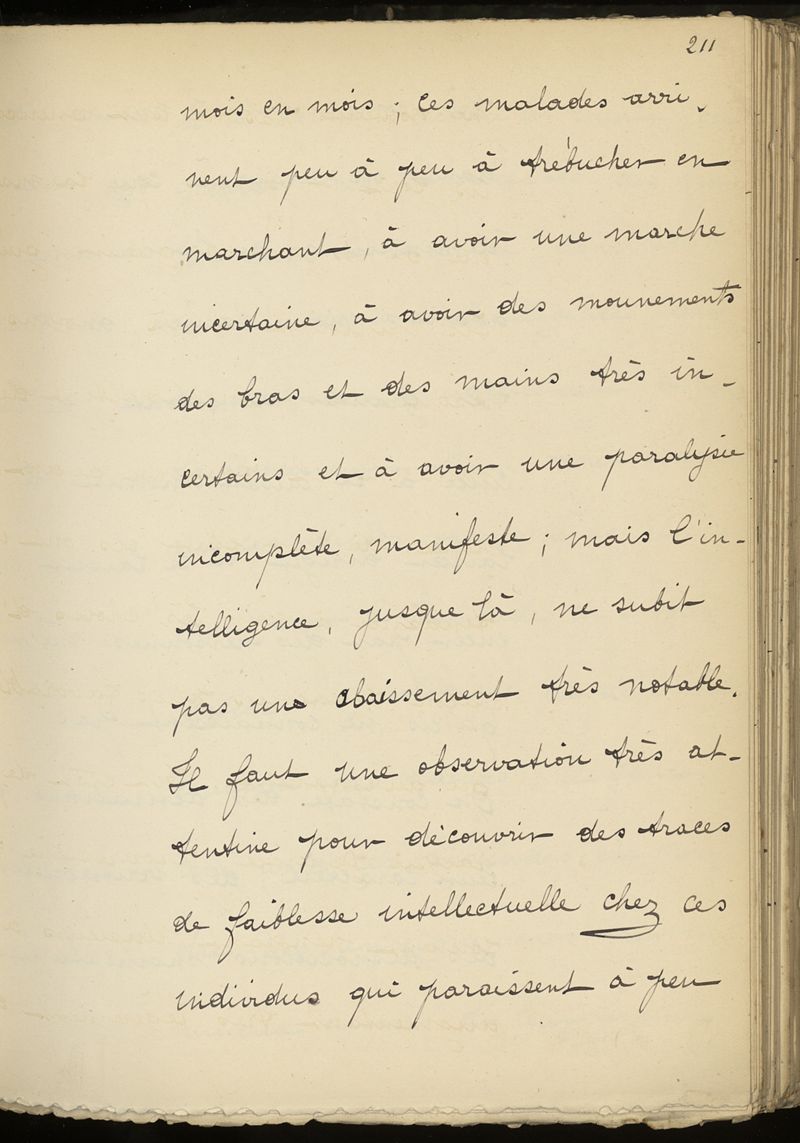 211
mois en mois ; ces malades arri-
vent peu à peu à trébucher en
marchant, à avoir une marche
incertaine, à avoir des mouvements
des bras et des mains très in-
certains et à avoir une paralysie
incomplète, manifeste ; mais l'in-
telligence, jusque là, ne subit
pas une abaissement très notable.
Il faut une observation très at-
tentive pour découvrir des traces
de faiblesse intellectuelle chez ces
individus qui paraissent à peu